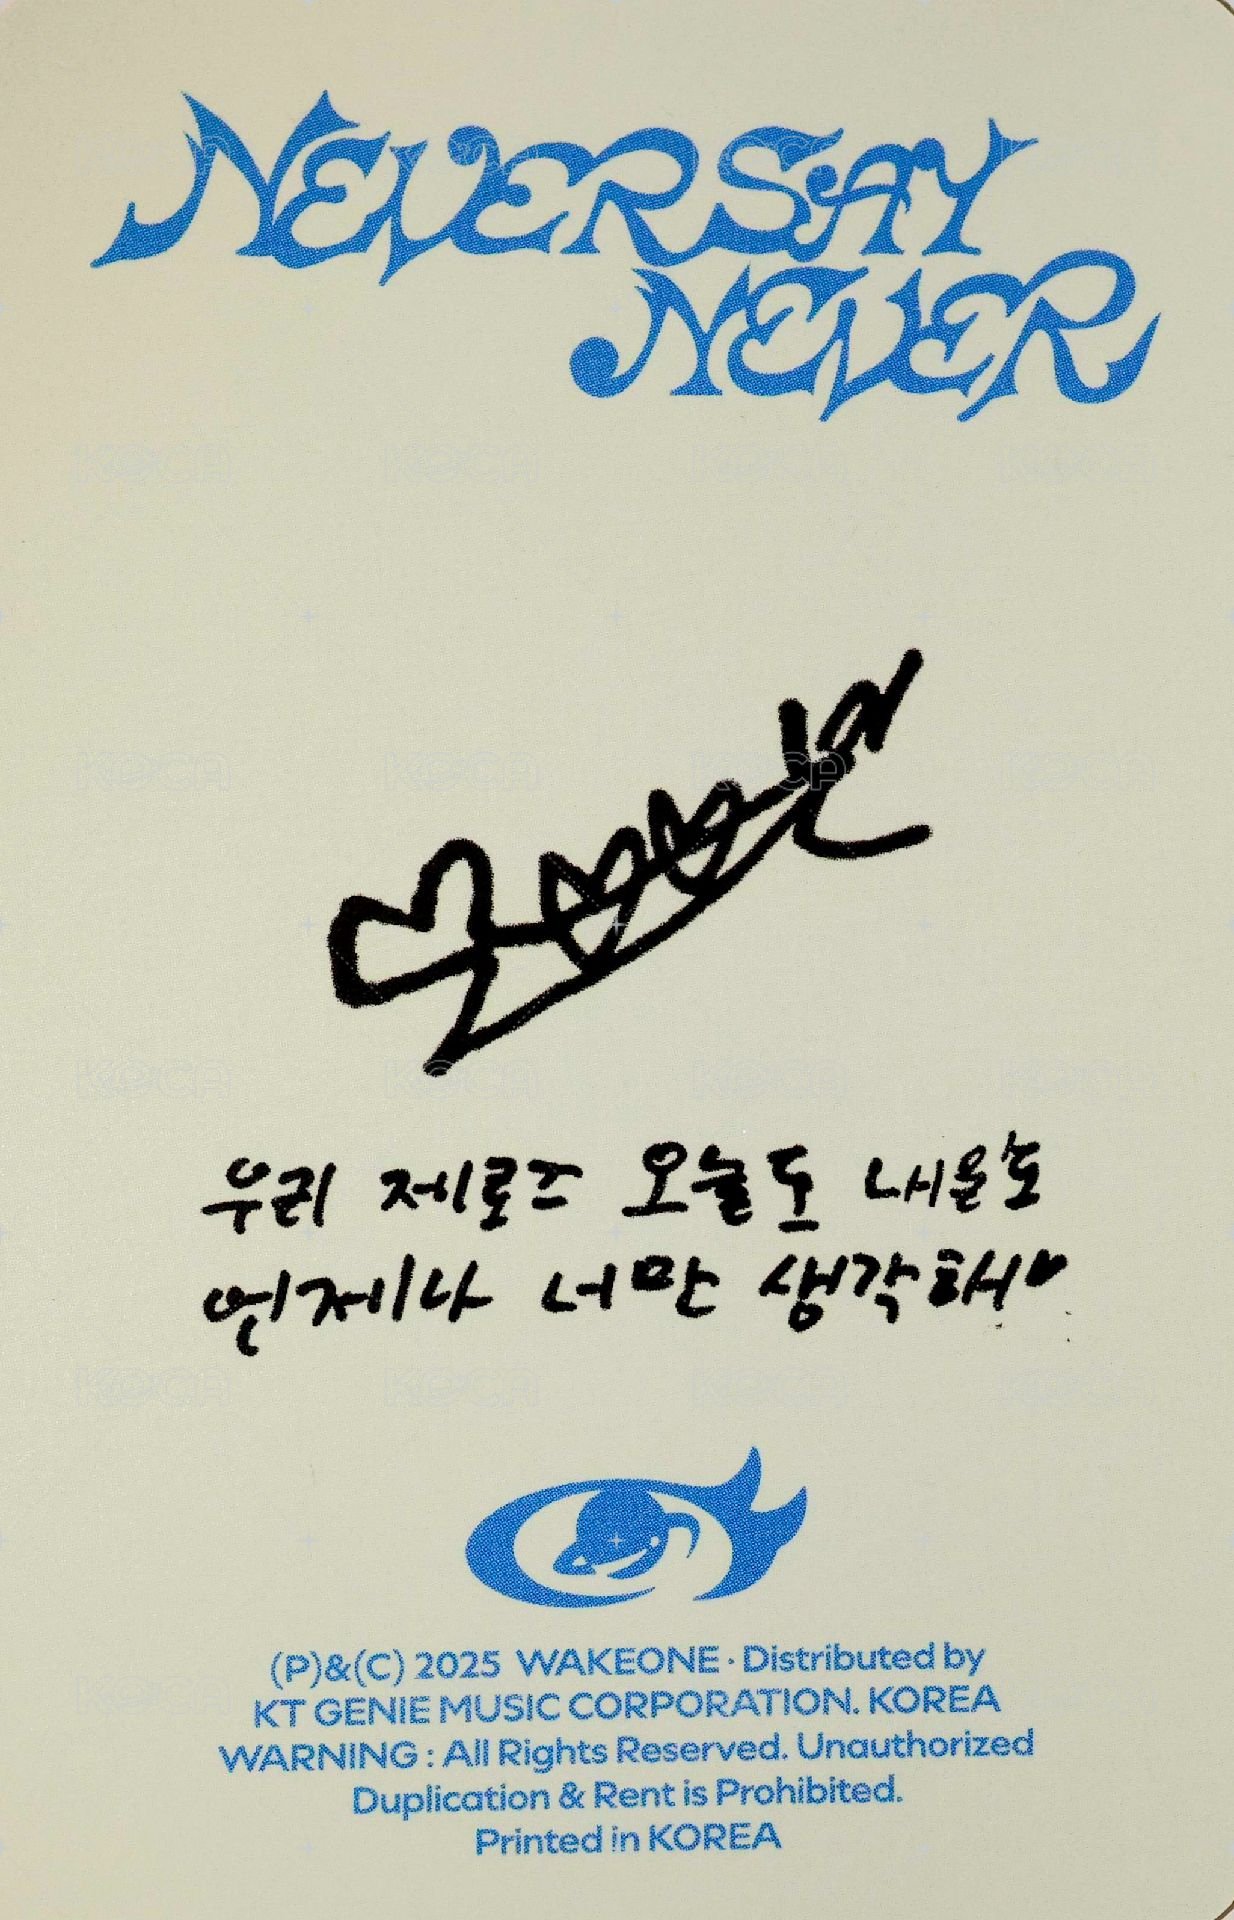 NEVER SAY
NEVER
우리 제로즈 오늘도 내일도
언제나 너만 생각해♥
(P)&(C) 2025 WAKEONE · Distributed by
KT GENIE MUSIC CORPORATION. KOREA
WARNING : All Rights Reserved. Unauthorized
Duplication & Rent is Prohibited.
Printed in KOREA